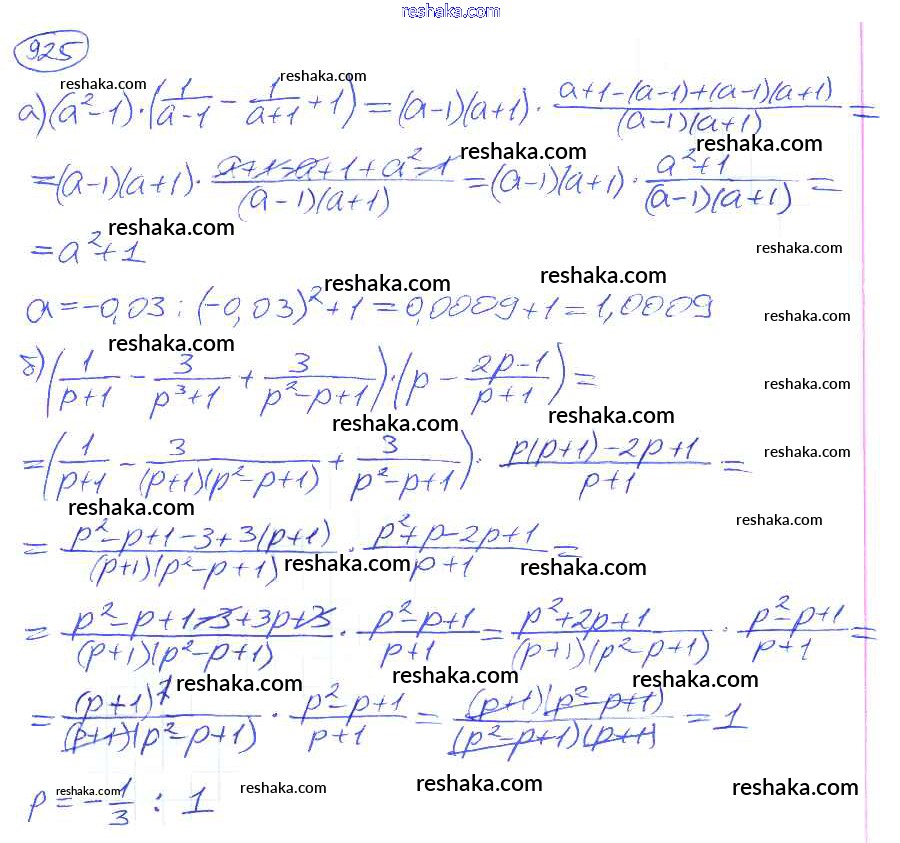 reshaka.com
925
reshaka.com reshaka.com
а) (a²-1)·(1/(a-1) - 1/(a+1) + 1) = (a-1)(a+1) · (a+1-(a-1)+(a-1)(a+1))/((a-1)(a+1)) =
reshaka.com reshaka.com
= (a-1)(a+1) · (a+1-a+1+a²-1)/((a-1)(a+1)) = (a-1)(a+1) · (a²+1)/((a-1)(a+1)) =
reshaka.com reshaka.com
= a²+1
reshaka.com reshaka.com
a = -0,03 : (-0,03)²+1 = 0,0009+1 = 1,0009 reshaka.com
reshaka.com
б) (1/(p+1) - 3/(p³+1) + 3/(p²-p+1))·(p - (2p-1)/(p+1)) = reshaka.com
reshaka.com reshaka.com
= (1/(p+1) - 3/((p+1)(p²-p+1)) + 3/(p²-p+1)) · (p(p+1)-2p+1)/(p+1) = reshaka.com
reshaka.com reshaka.com
= (p²-p+1-3+3(p+1))/((p+1)(p²-p+1)) · (p²+p-2p+1)/(p+1) =
reshaka.com reshaka.com
= (p²-p+1-3+3p+3)/((p+1)(p²-p+1)) · (p²-p+1)/(p+1) = (p²+2p+1)/((p+1)(p²-p+1)) · (p²-p+1)/(p+1) =
reshaka.com reshaka.com reshaka.com
= (p+1)²/((p+1)(p²-p+1)) · (p²-p+1)/(p+1) = ((p+1)(p²-p+1))/((p²-p+1)(p+1)) = 1
reshaka.com reshaka.com reshaka.com reshaka.com
p = -1/3 : 1